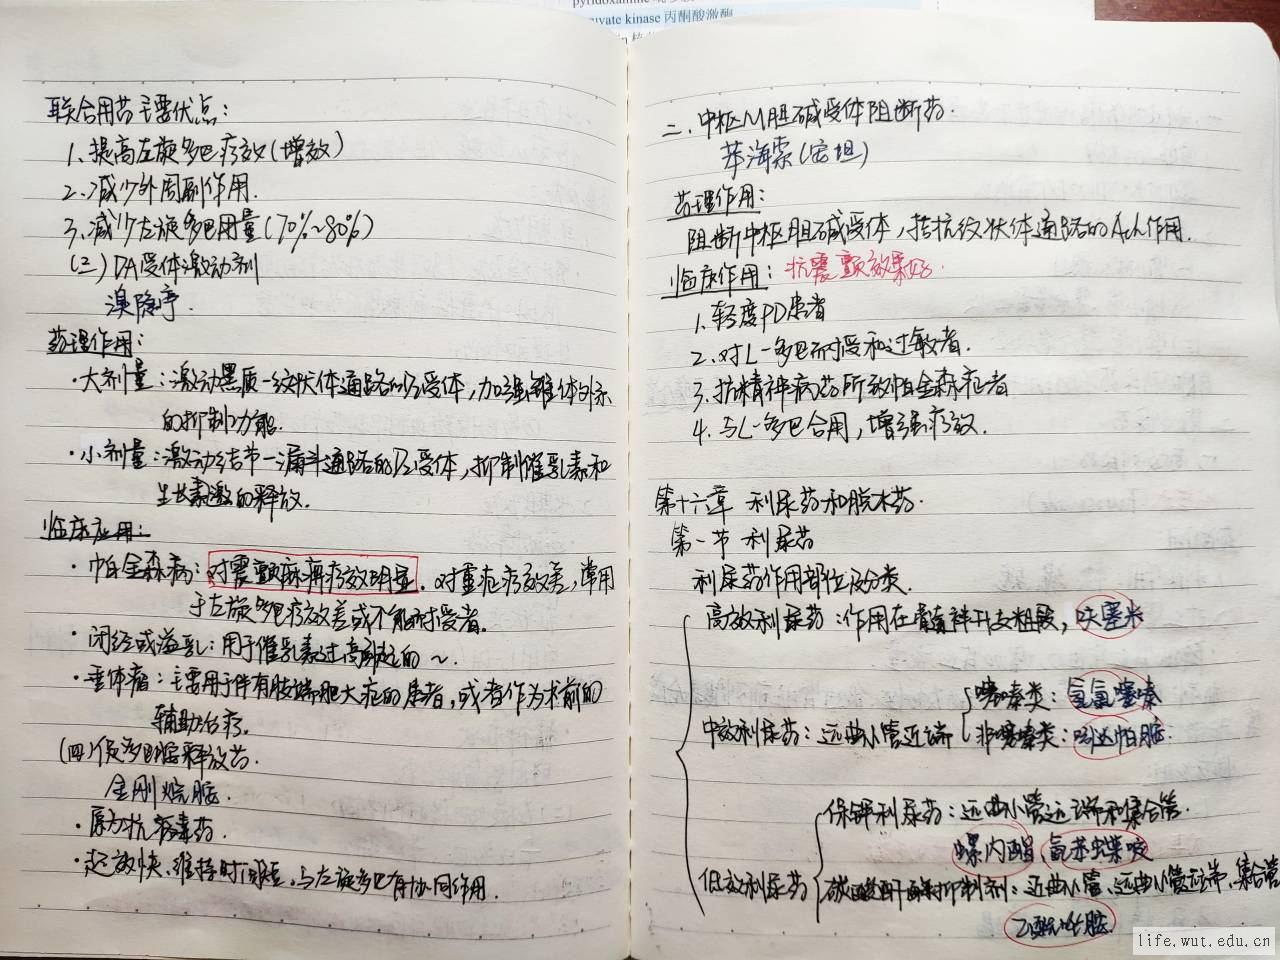 pyridoxamine
pyruvate kinase 丙酮酸激酶
联合用药主要优点：
1、提高左旋多巴疗效(增效)
2、减少外周副作用.
3、减少左旋多巴用量(70%~80%)
(三) DA受体激动剂
溴隐亭.
药理作用：
·大剂量：激动黑质—纹状体通路的D2受体，加强锥体外系
的抑制功能.
·小剂量：激动结节—漏斗通路的D2受体，抑制催乳素和
生长素激的释放.
临床应用：
·帕金森病：对震颤麻痹疗效明显，对重症疗效差，常用
于左旋多巴疗效差或不能耐受者.
·闭经或溢乳：用于催乳素过高引起的～.
·垂体瘤：主要用于伴有肢端肥大症的患者，或者作为术前的
辅助治疗.
(四)促多巴胺释放药.
金刚烷胺.
·原为抗病毒药.
·起效快、维持时间短，与左旋多巴有协同作用.
二、中枢M胆碱受体阻断药.
苯海索(安坦)
药理作用：
阻断中枢胆碱受体，拮抗纹状体通路的Ach作用.
临床作用：抗震颤效果好.
1、轻度PD患者
2、对L—多巴耐受和过敏者.
3、抗精神病药所致帕金森症者
4、与L—多巴合用，增强疗效.
第十六章 利尿药和脱水药.
第一节 利尿药
利尿药作用部位及分类.
高效利尿药：作用在髓袢升支粗段，呋塞米
噻嗪类：氢氯噻嗪
中效利尿药：远曲小管近端
非噻嗪类：吲达帕胺.
保钾利尿药：远曲小管远端和集合管.
螺内酯、氨苯蝶啶
低效利尿药
碳酸酐酶抑制剂：近曲小管、远曲小管远端、集合管
乙酰唑胺.
life.wut.edu.cn